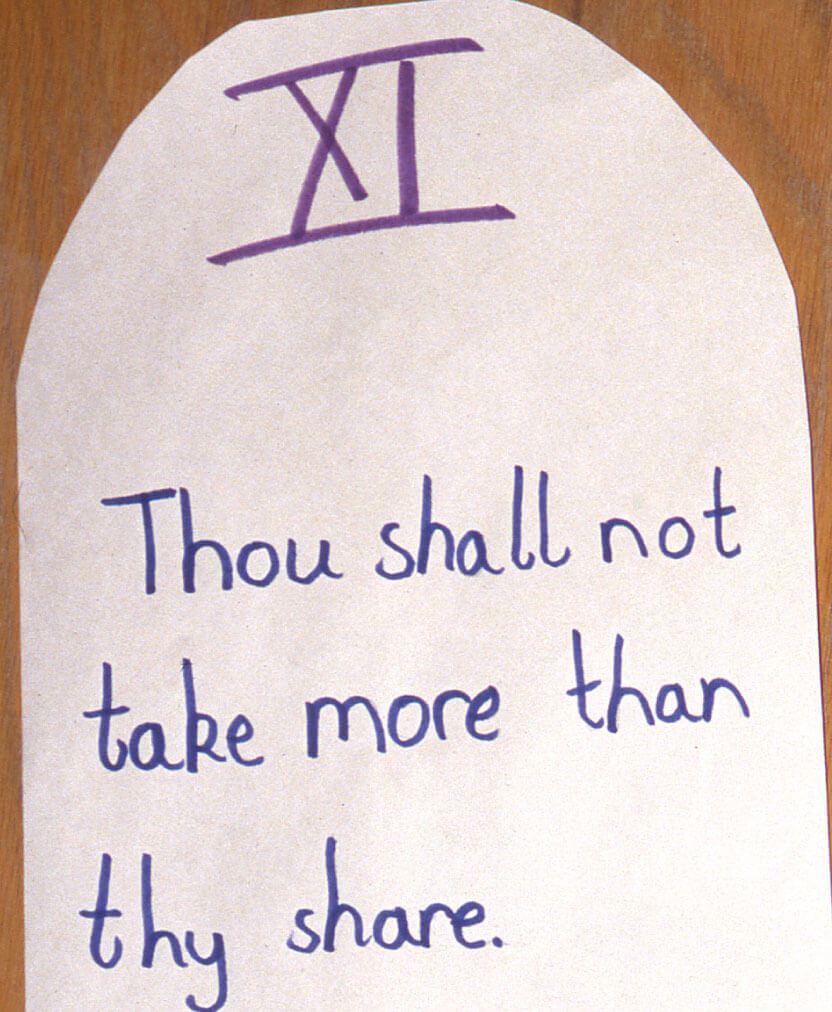 XI
Thou shall not
take more than
thy share.